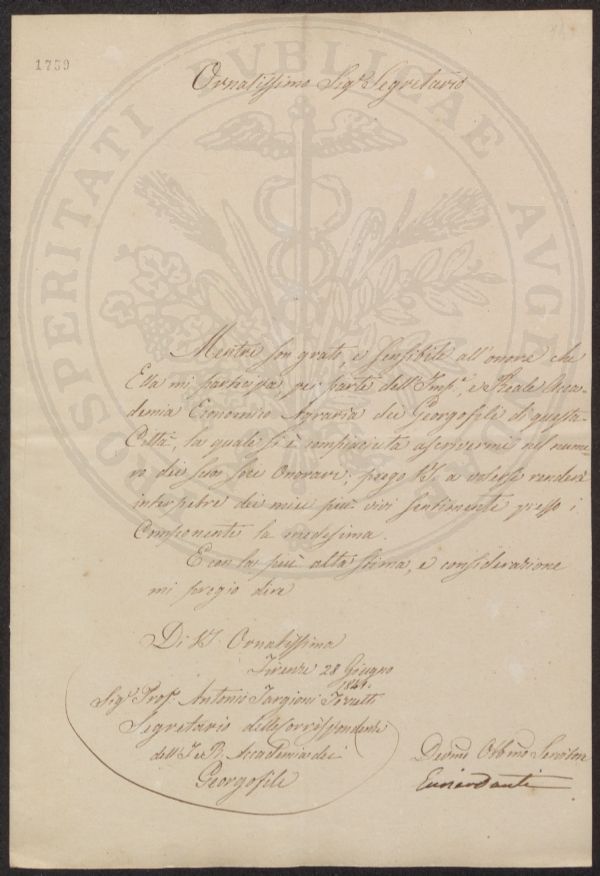 1739
Ornatissimo Sigr. Segretario
Mentre son grato, e sensibile all'onore che
Ella mi partecipa, per parte dell'Imple. e Reale Acca-
demia Economico Agraria dei Georgofili di questa
Città, la quale si è compiaciuta ascrivermi nel nume-
ro dei suoi soci Onorari; prego V.S. a volersi rendere
interpetre dei miei più vivi sentimenti presso i
Componenti la medesima.
E con la più alta stima, e considerazione
mi pregio dire
Di V.S. Ornatissima
Firenze 28 Giugno
1844.
Sigr. Profr. Antonio Targioni Tozzetti
Segretario delle Corrispondenze
dell'I. e R. Accademia dei
Georgofili
Devmo Obbmo Servitore
PROSPERITATI PVBLICAE AVGE